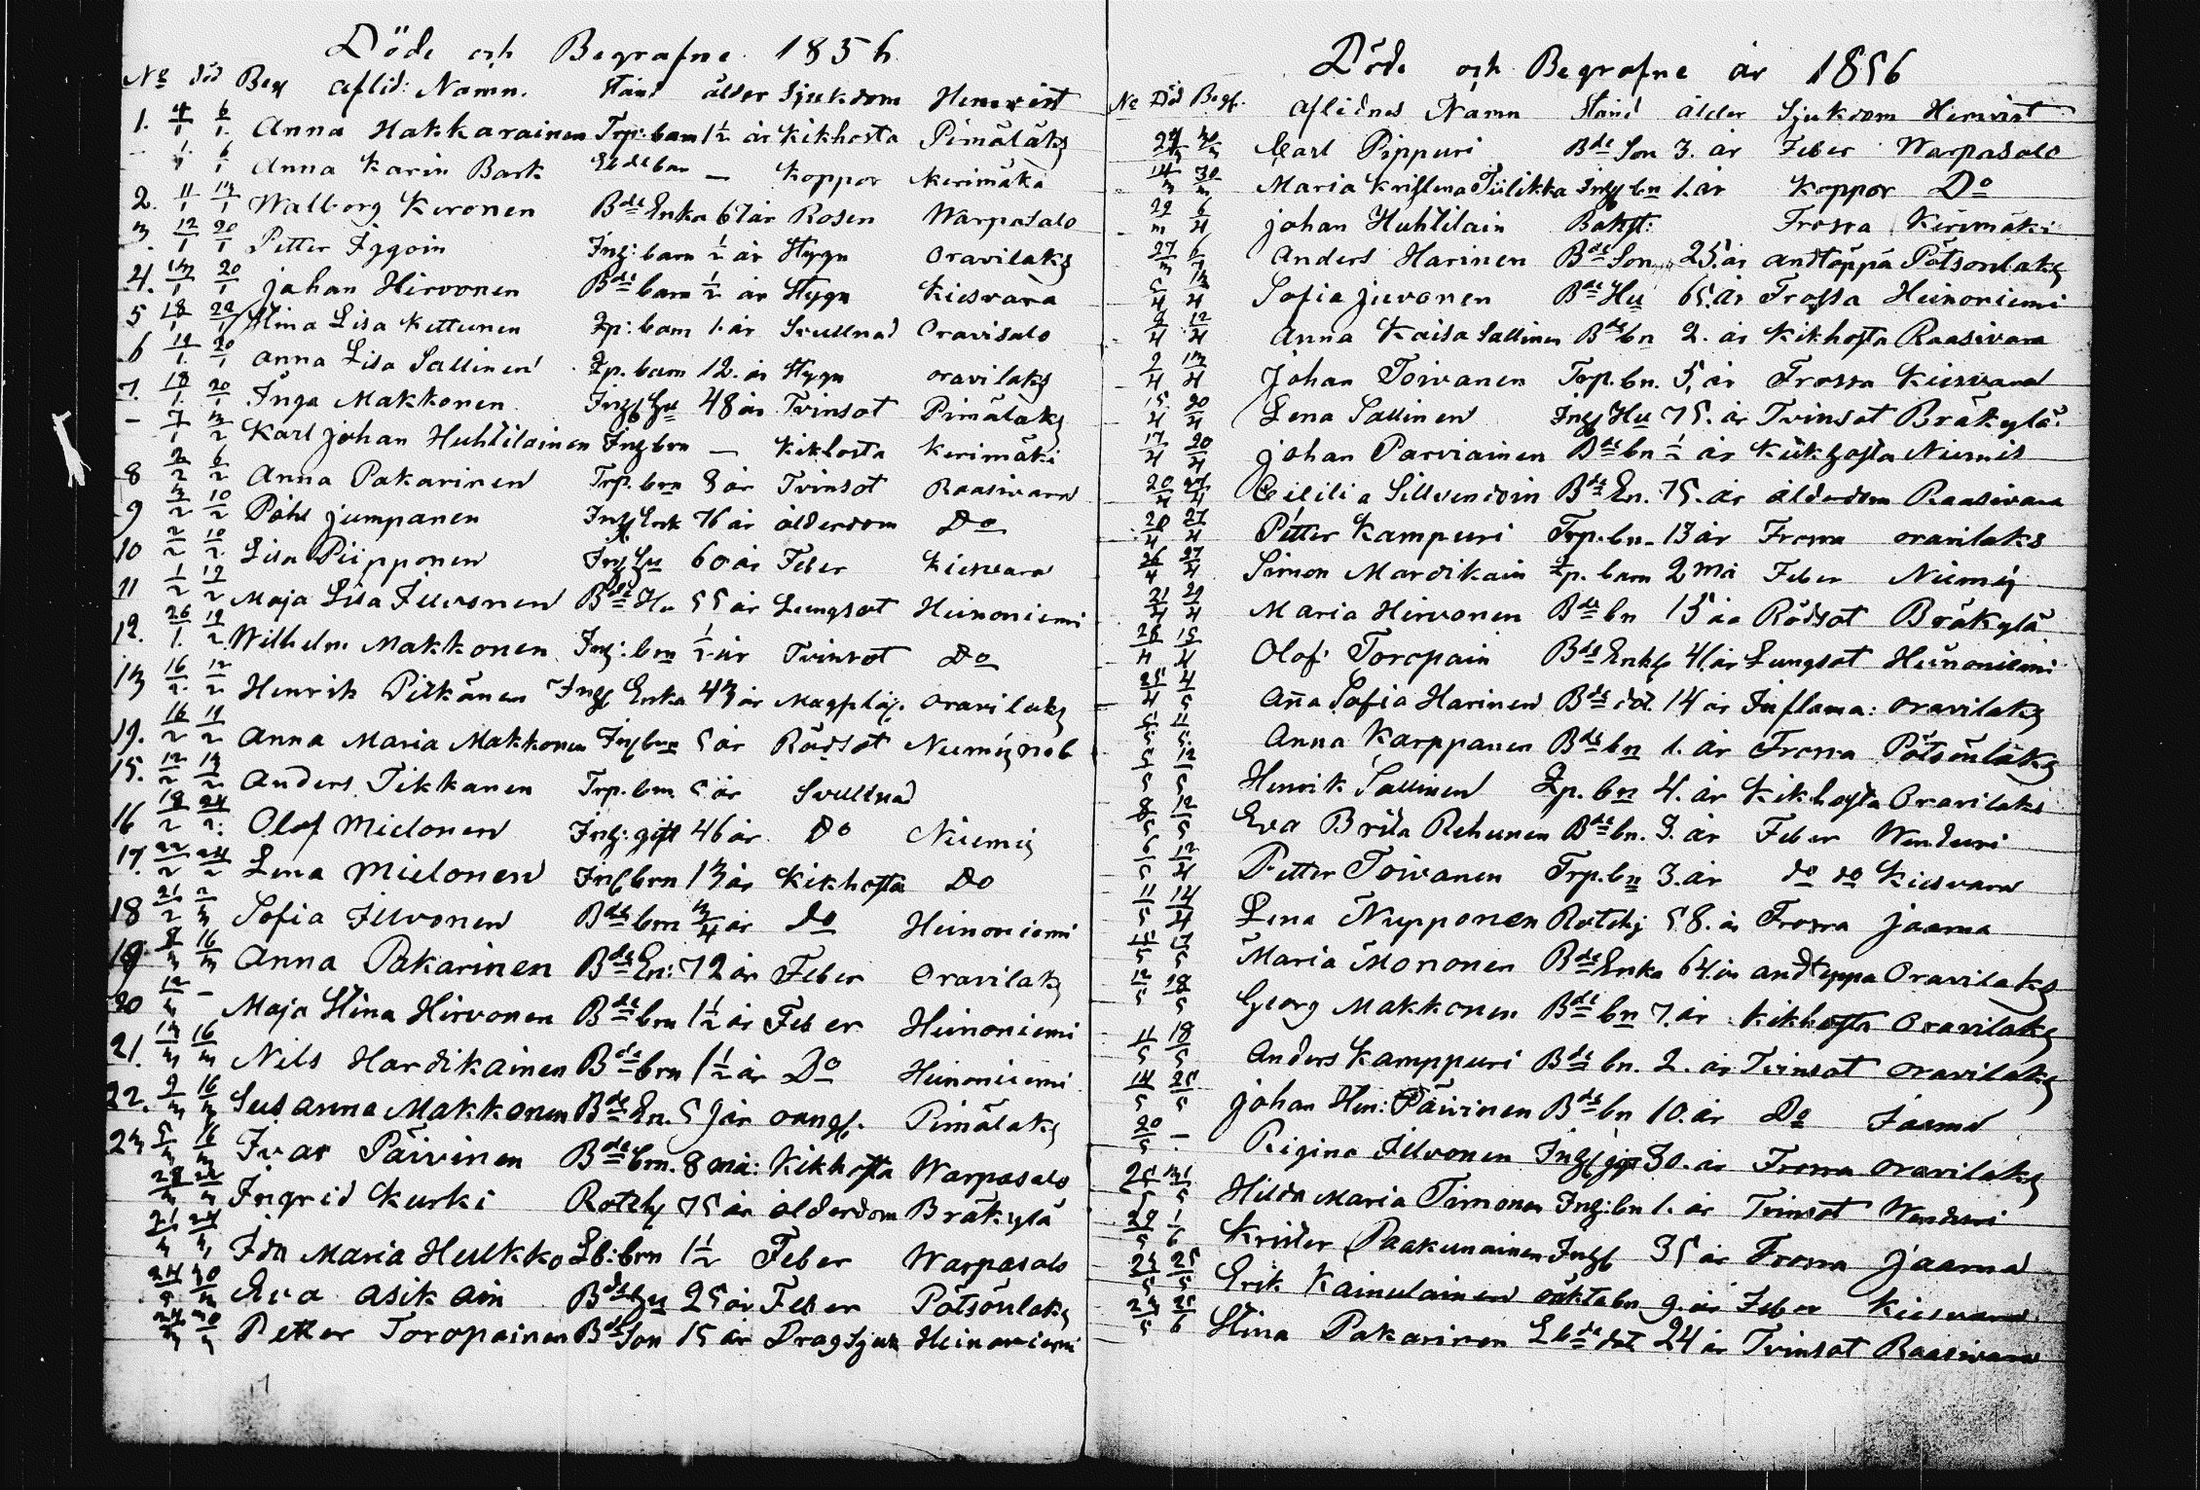 Döde och Begrafne 1856
No död Begr aflid: Namn. Stånd ålder Sjukdom Hemvist
1. 4/1 6/1 Anna Hakkarainen Trp: barn 1 1/2 år Kikhosta Pimäläks
- 1/1 6/1 Anna Karin Bark barn — Koppor Kerimäki
2. 11/1 13/1 Walborg Keronen Bde Enka 67 år Rosen Warpasalo
3. 12/1 20/1 Petter Iggoin Inh: barn 1/2 år Hygn Oravilaks
4. 13/1 20/1 Johan Hirvonen Bde barn 1/2 år Hygn Kiesvara
5 18/1 Stina Lisa Kettunen barn 1. år Svullnad Oravisalo
6 14/1 20/1 Anna Lisa Sallinen barn 12. år Hygn oravilaks
7. 18/1 20/1 Inga Makkonen 48 år Tvinsot Pimäläks
- 7/1 3/2 Karl Johan Huhtilainen brn — Kikhosta Kerimäki
8 2/2 6/2 Anna Pakarinen Trp. brn 8 år Tvinsot Raasivara
9 3/2 10/2 Påhl Jumpanen 76 år ålderdom Do
10 2/2 10/2 Lisa Piipponen 60 år Feber Kiesvara
11 1/2 12/2 Maja Lisa Ilvonen Bde Hu 55 år Lungsot Heinoniemi
12. 26/1 12/2 Wilhelm Makkonen brn 1/2 år Tvinsot Do
13 16/2 12/2 Henrik Pitkänen Enka 43 år Oravilaks
14. 16/2 Anna Maria Makkonen brn 5 år Rödsot Niemis
15. 12/2 13/2 Anders Tikkanen Trp. brn 5 år Svullnad
16 18/2 24/2 Olof Mielonen gift 46 år Do Niemis
17. 22/2 24/2 Lena Mielonen brn 13 år Kikhosta Do
18 21/2 2/3 Sofia Ilvonen Bde brn 3/4 år Do Heinoniemi
19 8/3 16/3 Anna Pakarinen Bde En: 72 år Feber Oravilaks
20 12/3 - Maja Stina Hirvonen Bde brn 1 1/2 år Feber Heinoniemi
21. 13/3 16/3 Nils Hardikainen Bde brn 1 1/2 år Do Heinoniemi
22. 9/3 16/3 Susanna Makkonen Bde En. 59 år Pimälaks
23 5/3 16/3 Ivar Päivinen Bde brn. 8 må: Kikhosta Warpasalo
Ingrid Kurki Rothj 75 år ålderdom Bråkylä
21/3 24/3 Ida Maria Heukko Lb: brn 1 1/2 Feber Warpasalo
30/3 Eva Asikain Bde Hu 25 år Feber Pötsönlaks
24/3 30/3 Petter Toropainen Bde Son 15 år Dragsjuk Heinoniemi
Döde och Begrafne år 1856
No Död Begf. aflidnes Namn Stånd ålder Sjukdom Hemvist
24/3 30/3 Carl Pippuri Bde Son 3. år Feber Warpasalo
14/3 30/3 Maria Kristina Tiilikka bn 1. år Koppor Do
29/3 6/4 Johan Huhtilain Frossa Kerimäki
27/3 Anders Harinen Bde Son 25. år andtäppa Pötsönlaks
5/4 13/4 Sofia Juvonen Bde Hu 65. år Frossa Heinoniemi
9/4 12/4 Anna Kaisa Sallinen Bde bn 2. år Kikhosta Raasivara
2/4 13/4 Johan Toivanen Trp. bn. 5. år Frossa Kiesvara
15/4 20/4 Lena Sallinen Hu 75. år Tvinsot Bråkylä
17/4 20/4 Johan Parviainen Bde bn 1/2 år Kikhosta Niemis
20/4 27/4 Cecilia Silvendoin Bde En. 75. år ålderdom Raasivara
20/4 27/4 Petter Kampuri Trp. bn. 13 år Frossa oravilaks
26/4 27/4 Simon Mardikain barn 2 må Feber Niemis
21/4 29/4 Maria Hirvonen Bde bn 15 år Rödsot Bråkylä
Olof Toropain Bde Enkl 41. år Lungsot Heinoniemi
25/4 4/5 Anna Sofia Harinen Bde dot. 14 år Inflama: oravilaks
5/5 11/5 Anna Karppanen Bde bn 1. år Frossa Pötsönläks
5/5 12/5 Henrik Sallinen bn 4. år Kikhosta Oravilaks
8/5 12/5 Eva Brita Rehunen Bde bn. 3. år Feber Wenduri
6/5 12/4 Petter Toivanen Trp. bn 3. år do do Kiesvara
11/5 14/4 Lena Nupponen Rothj 58. år Frossa Jaama
Maria Mononen Bde Enka 64. år andteppa Oravilaks
12/5 18/5 Georg Makkonen Bde bn 7. år Kikhosta Oravilaks
11/5 18/5 Anders Kamppuri Bde bn. 2. år Tvinsot oravilaks
14/5 25/5 Johan Hen: Päivinen Bde bn 10. år Do Jaama
20/5 - Regina Ilvonen 30. år Frossa oravilaks
Hilda Maria Timonen Inh: bn 1. år Tvinsot Wenduri
29/5 1/6 Krister Paakunainen 35 år Frossa Jaama
23/5 25/5 Erik Kainulainen bn 9. år Feber Kiesvara
Stina Pakarinen dot 24 år Tvinsot Raasivara